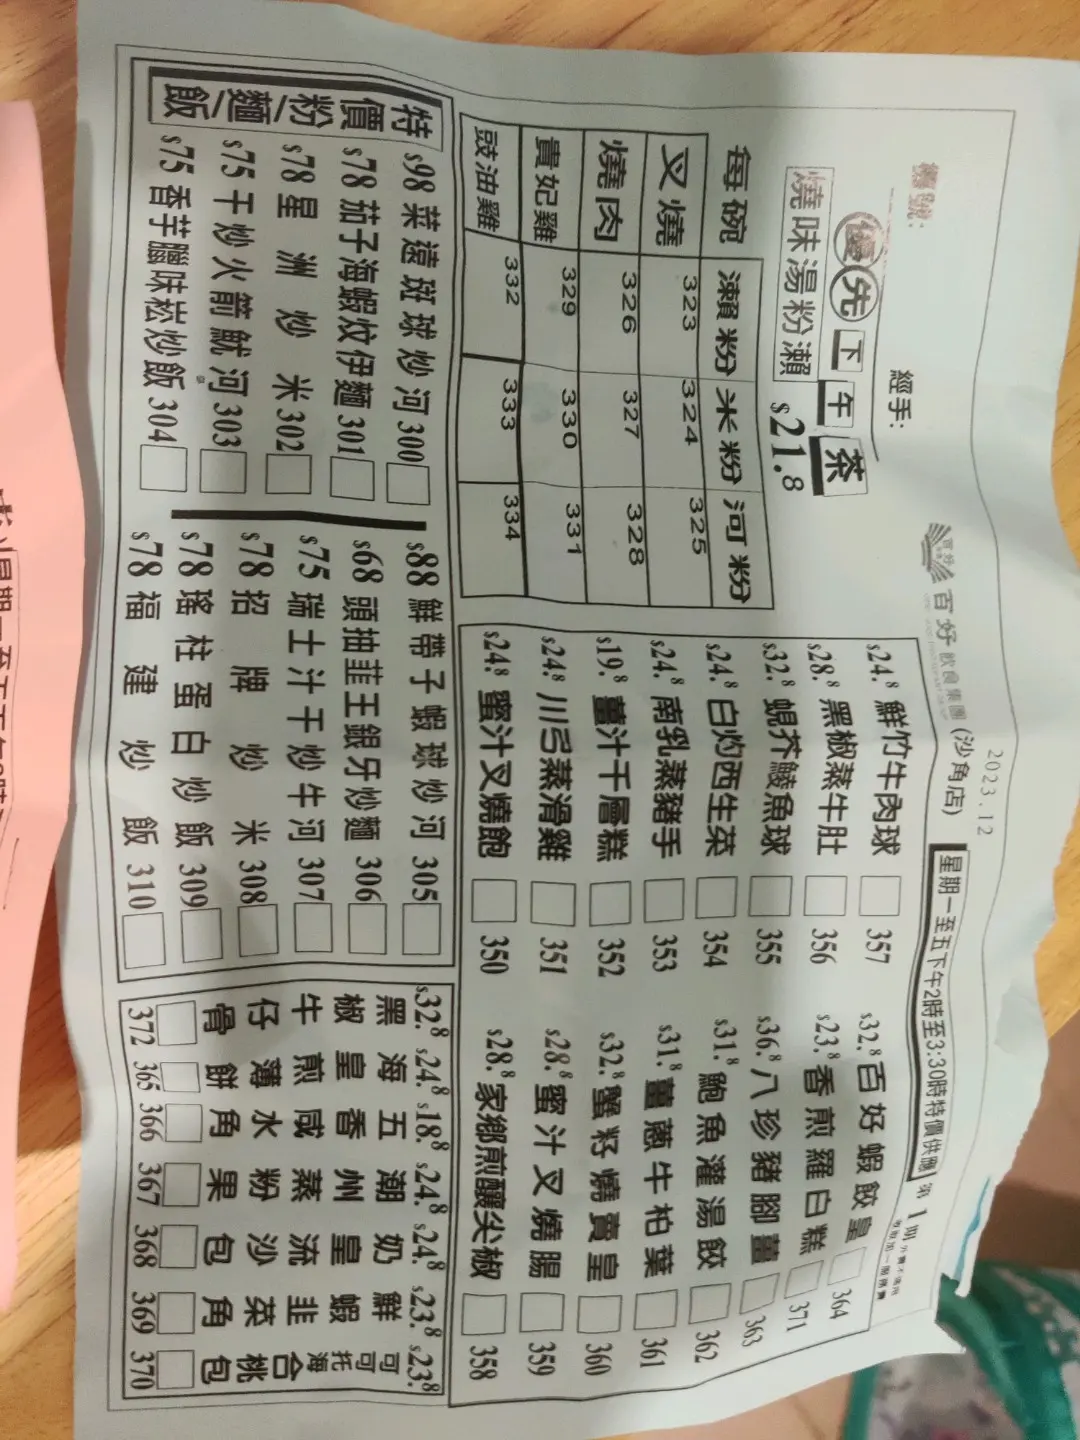 檯號:
經手:
百好飲食集團 (沙角店)
2023.12
優先下午茶
星期一至五下午2時至3:30時特價供應
第1期
燒味湯粉瀨 $21.8
每碗 瀨粉 米粉 河粉
叉燒 323 324 325
燒肉 326 327 328
貴妃雞 329 330 331
豉油雞 332 333 334
$24.8 鮮竹牛肉球 357
$28.8 黑椒蒸牛肚 356
$32.8 蜆芥鯪魚球 355
$24.8 白灼西生菜 354
$24.8 南乳蒸豬手 353
$19.8 薑汁千層糕 352
$24.8 川弓蒸滑雞 351
$24.8 蜜汁叉燒飽 350
$32.8 百好蝦餃皇 364
$23.8 香煎羅白糕 371
$36.8 八珍豬腳薑 363
$31.8 鮑魚灌湯餃 362
$31.8 薑蔥牛柏葉 361
$32.8 蟹籽燒賣皇 360
$28.8 蜜汁叉燒腸 359
$28.8 家鄉煎釀尖椒 358
特價粉/麵/飯
$98 菜遠斑球炒河 300
$78 茄子海蝦炆伊麵 301
$78 星洲炒米 302
$75 干炒火箭魷河 303
$75 香芋臘味崧炒飯 304
$88 鮮帶子蝦球炒河 305
$68 頭抽韭王銀牙炒麵 306
$75 瑞士汁干炒牛河 307
$78 招牌炒米 308
$78 瑤柱蛋白炒飯 309
$78 福建炒飯 310
$32.8 黑椒牛仔骨 372
$24.8 海皇煎薄餅 365
$18.8 五香咸水角 366
$24.8 潮州蒸粉果 367
$24.8 奶皇流沙包 368
$23.8 鮮蝦韭菜角 369
$23.8 可可托海合桃包 370